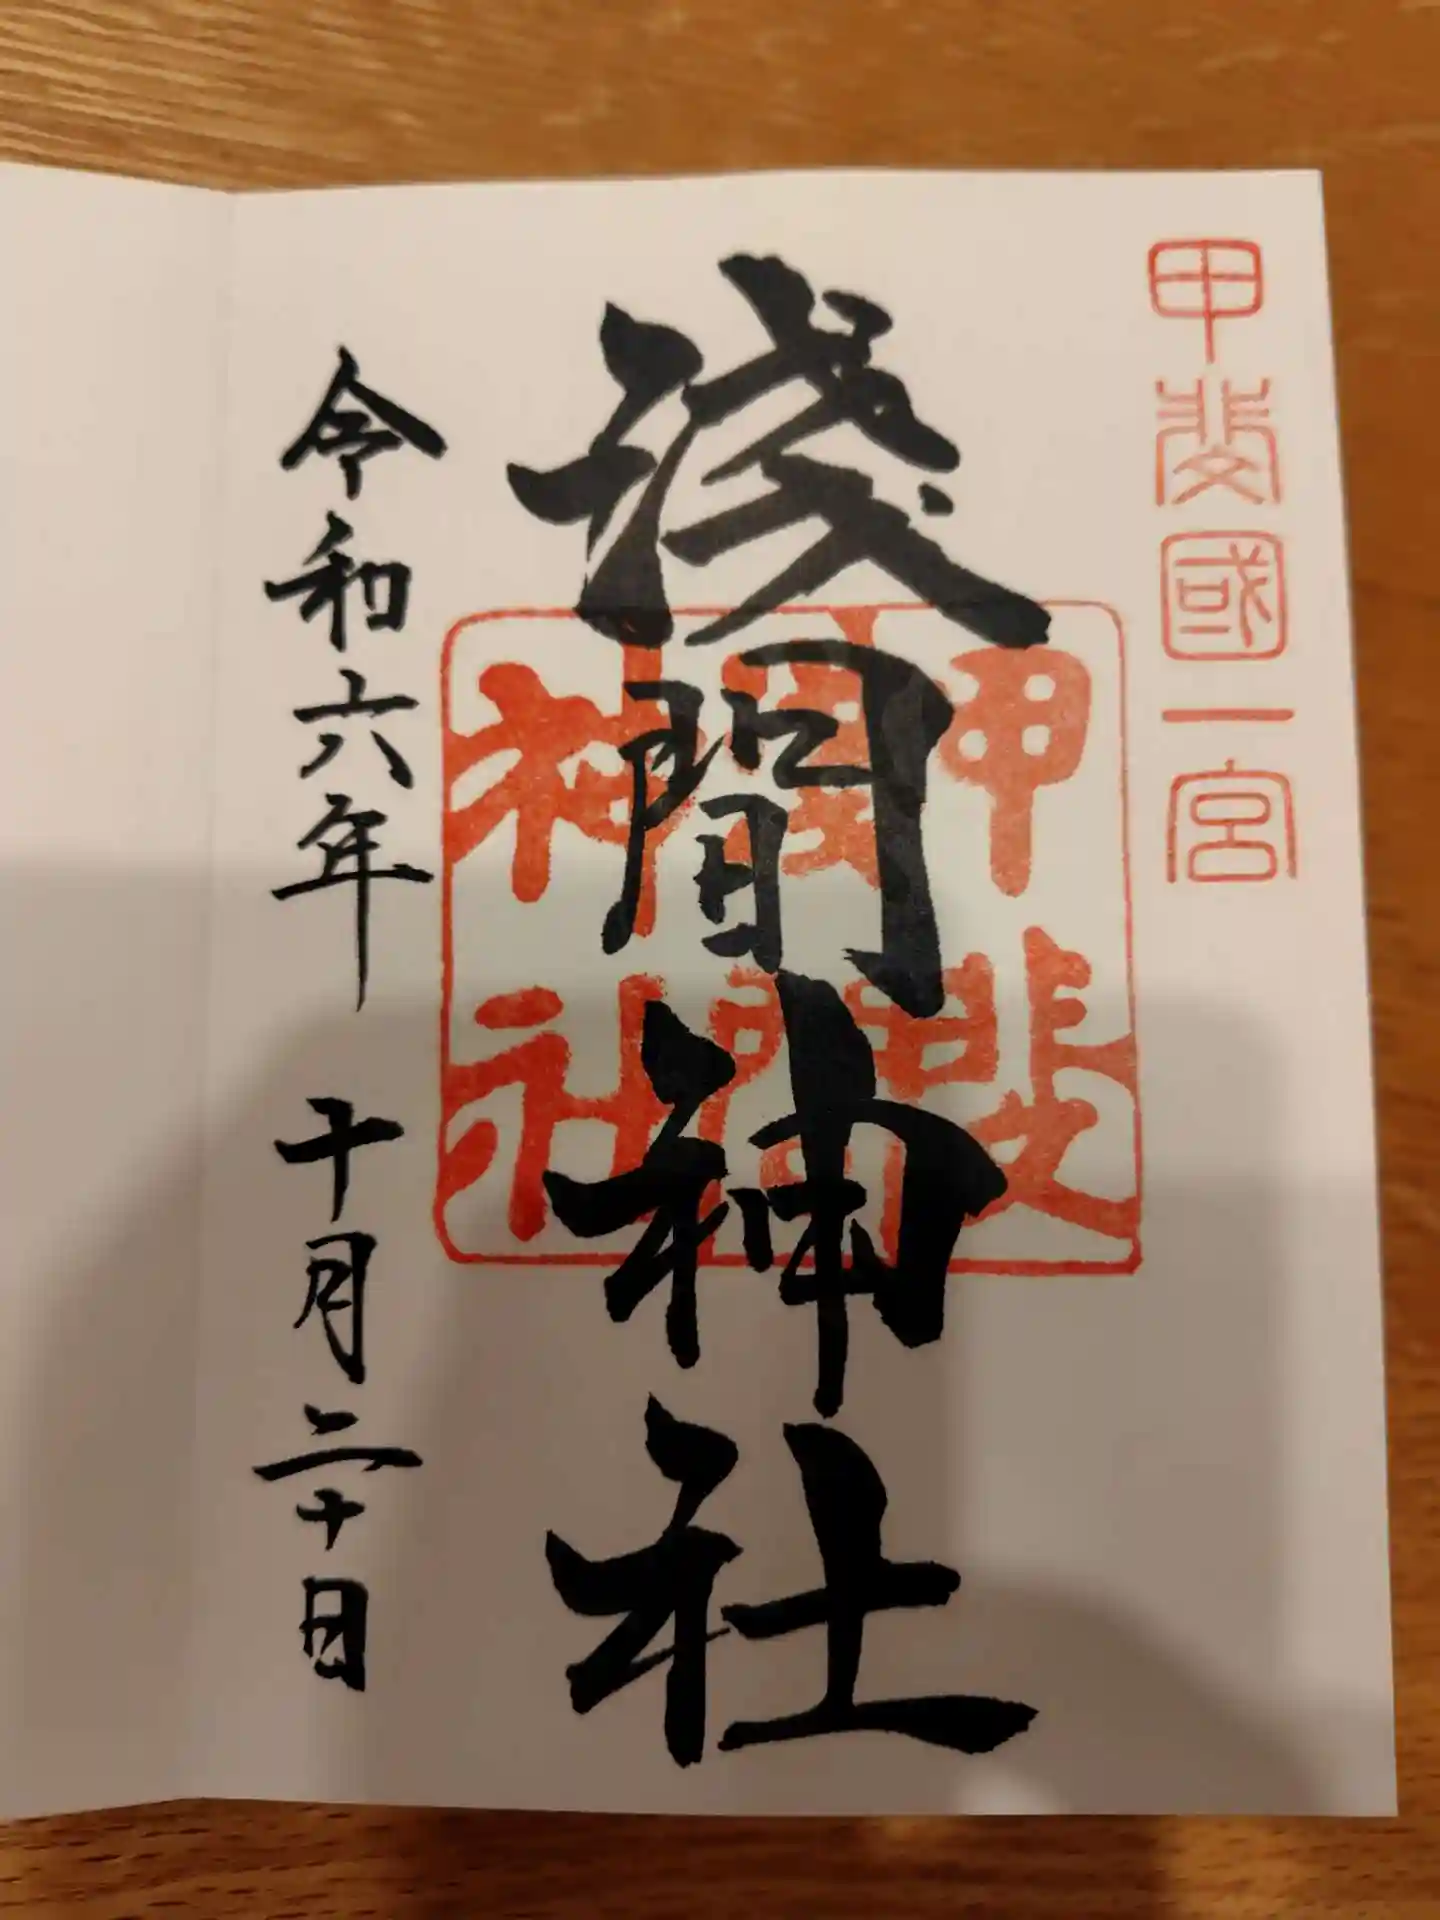 甲斐國一宮
淺間神社
甲斐
淺間
神社
令和六年 十月二十日